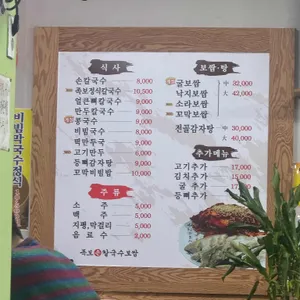 식 사
손칼국수 8,000
족보정식칼국수 10,500
얼큰뼈칼국수 9,000
만두칼국수 9,000
콩국수 9,000
비빔국수 8,000
떡만두국 9,000
고기만두 6,000
등뼈감자탕 9,000
꼬막비빔밥 10,000
주 류
소 주 5,000
맥 주 5,000
지평,막걸리 5,000
음 료 수 2,000
족보 칼국수보쌈
보쌈·탕
굴보쌈 中 33,000
낙지보쌈 大 43,000
소라보쌈
꼬막보쌈
전골감자탕 中 30,000
大 40,000
추가메뉴
고기추가 17,000
김치추가 15,000
굴 추가 17,000
등뼈추가
비빔칼국수정식